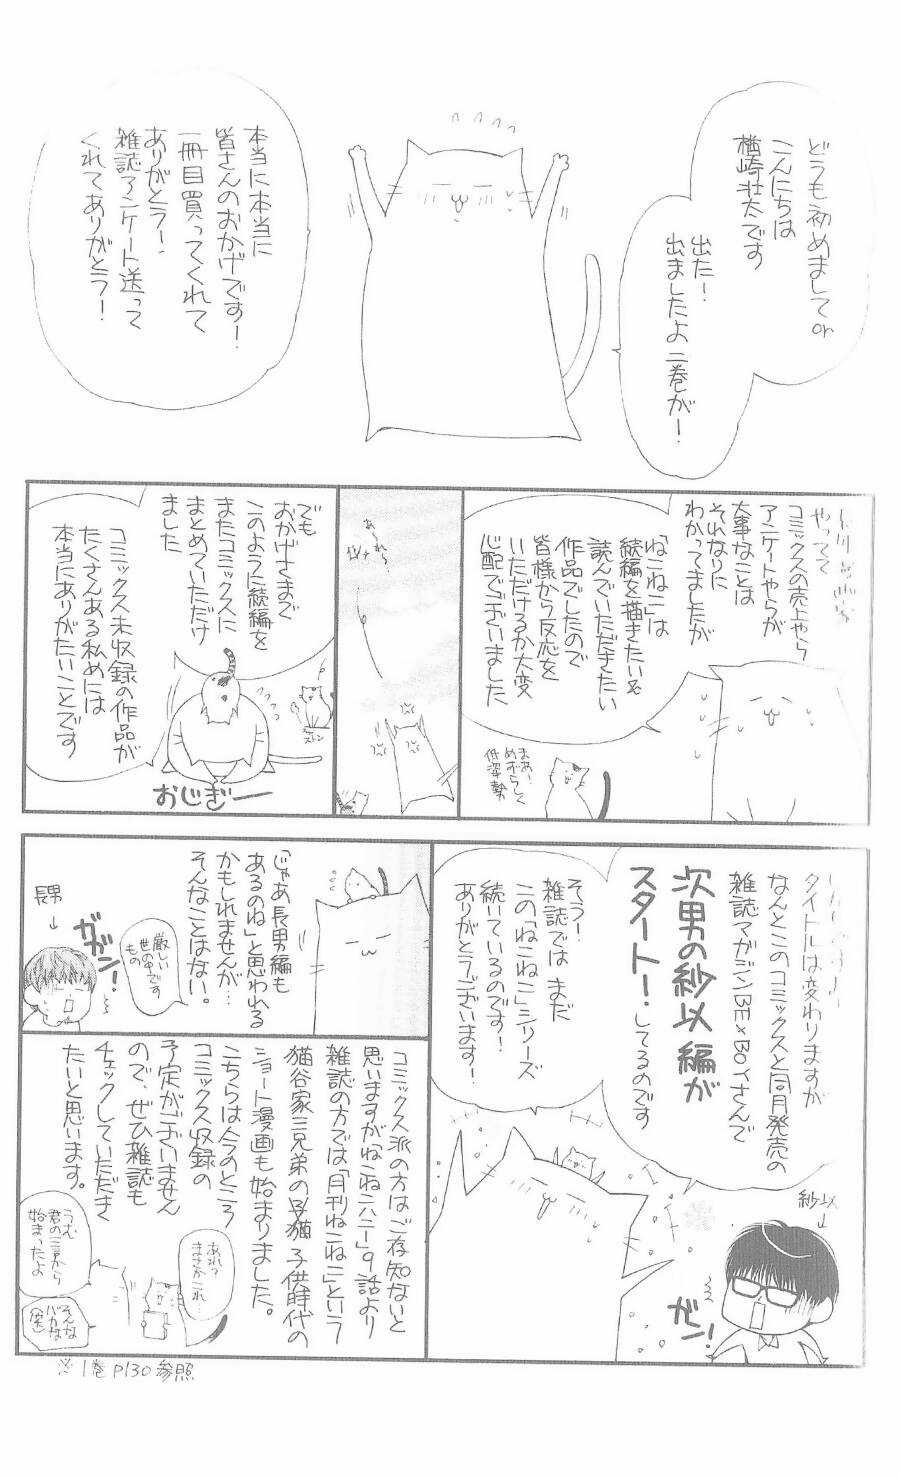 どうも初めましてor
こんにちは
楢崎壮太です
出た!
出ましたよ二巻が!
本当に本当に
皆さんのおかげです!
一冊目買ってくれて
ありがとう!
雑誌アンケート送って
くれてありがとう!
やってて
コミックスの売上やら
アンケートやらが
大事なことは
それなりに
わかってましたが
「ねこねこ」は
続編を描きたい&
読んでいただきたい
作品でしたので
皆様から反応を
いただけるか大変
心配でございました
まあ!
めずらしく
低姿勢
でも
おかげさまで
このように続編を
またコミックスに
まとめていただけ
ました
ストン
おじぎー
コミックス未収録の作品が
たくさんある私めには
本当にありがたいことです
タイトルは変わりますが
なんとこのコミックスと同月発売の
雑誌マガジンBE×BOYさんで
次男の紗以編が
スタート!してるのです
そう!
雑誌では まだ
この「ねこねこ」シリーズ
続いているのです!
ありがとうございます!
紗以
ガン!
「じゃあ長男編も
あるのね」と思われる
かもしれませんが…
そんなことはない。
厳しい
世の中です
もの
長男
ガガン!
コミックス派の方はご存知ないと
思いますが「ねこねこハニー」9話より
雑誌の方では「月刊ねこねこ」という
猫谷家三兄弟の子猫子供時代の
ショート漫画も始まりました。
こちらは今のところ
コミックス収録の
予定がございません
ので、ぜひ雑誌も
チェックしていただき
たいと思います。
あれ?
まさかこれ…
うむ
君の一言から
始まったよ
そんな
バカな
※1巻P130参照